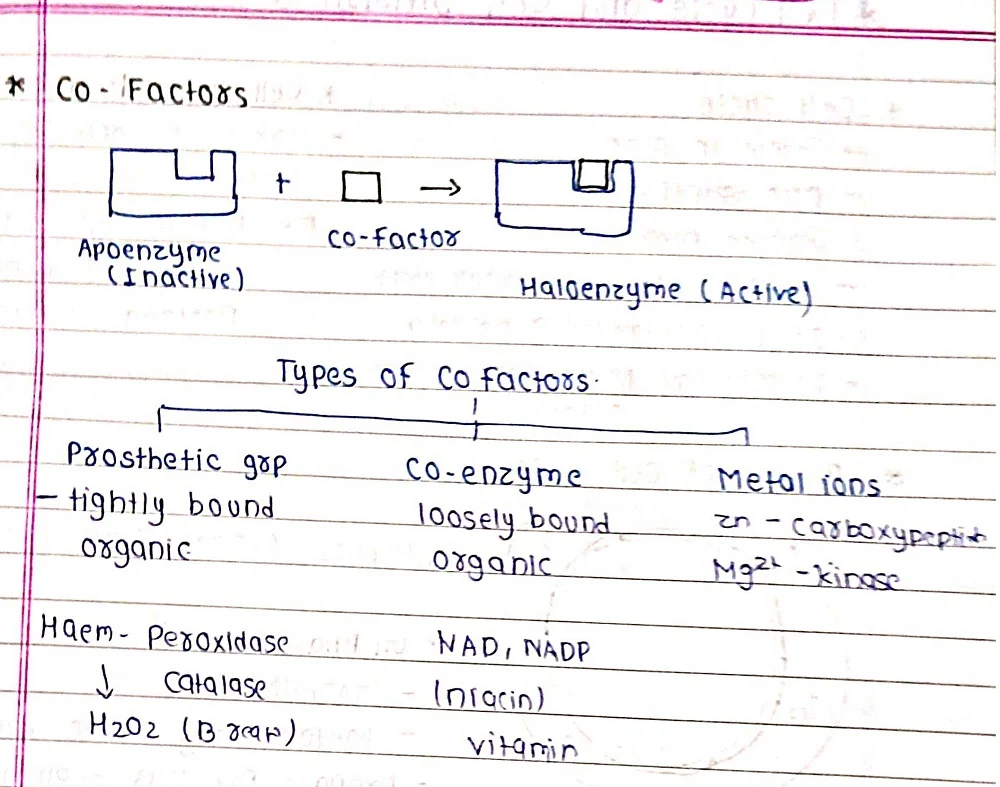 * Co-Factors
+ →
Apoenzyme
(Inactive)
co-factor
Haloenzyme (Active)
Types of Cofactors.
Prosthetic grp
- tightly bound
organic
Co-enzyme
loosely bound
organic
Metal ions
Zn - Carboxypeptid
Mg2+ - kinase
Haem - Peroxidase
↓ Catalase
H2O2 (Break)
NAD, NADP
(niacin)
vitamin